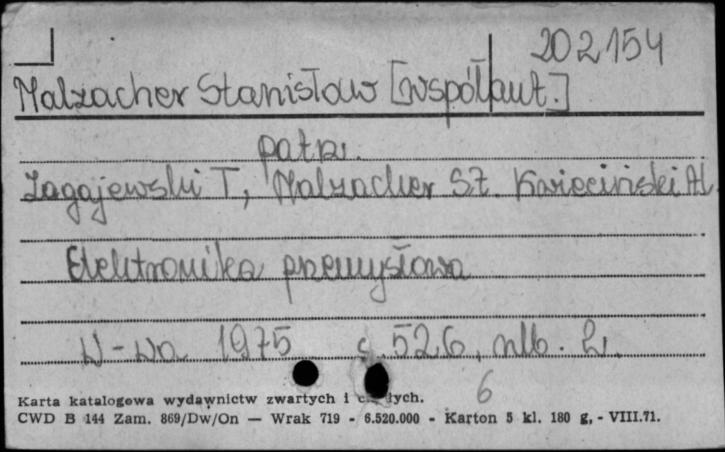 202154
Malzacher Stanisław [współaut.]
patrz.
Zagajewski T, Malzacher St. Kwieciński Al
Elektronika przemysłowa
W-wa 1975 s. 526, nlb. 2.
6
Karta katalogowa wydawnictw zwartych i ciągłych.
CWD B 144 Zam. 869/Dw/On — Wrak 719 - 6.520.000 - Karton 5 kl. 180 g, - VIII.71.